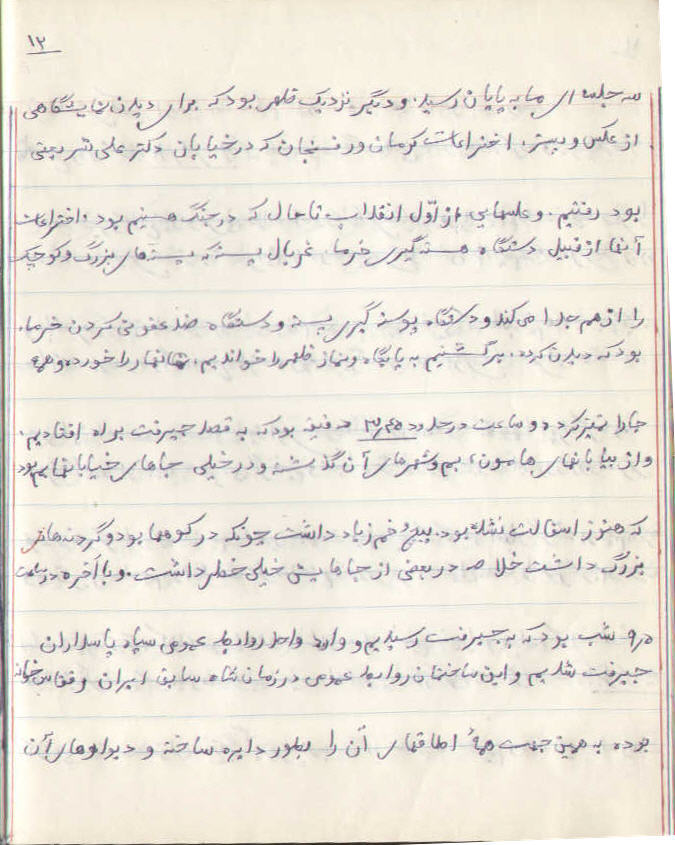 ۱۲
سه جلسه ای ما به پایان رسید. و دیگر نزدیک ظهر بود که برای دیدن نمایشگاهی
از عکس و پستر، اختراعات کرمان و رفسنجان که در خیابان دکتر علی شریعتی
بود رفتیم. و عکسهایی از اوّل انقلاب تا حال که در جنگ هستیم بود و اختراعات
آنها از قبیل دستگاه هسته گیری خرما، غربال پسته که پسته‌های بزرگ و کوچک
را از هم جدا می‌کند و دستگاه پوست گیری پسته و دستگاه ضد عفونی کردن خرما،
بود که دیدن کرده، برگشتیم به پایگاه و نماز ظهر را خواندیم. نهار را خورده و همه
جا را تمیز کرده و ساعت در حدود ۳٫۴۵ دقیقه بود که به قصد جیرفت براه افتادیم.
و از بیابانهای هامون، بم و شهرهای آن گذشته و در خیلی جاهای خیابانهایم بود
که هنوز اسفالت نشده بود. پیچ و خم زیاد داشت چونکه در کوهها بود و گردنه‌های
بزرگ داشت خلاصه در بعضی از جاهایش خیلی خطر داشت. و بالآخره در ساعت
۹٫۵ شب بود که به جیرفت رسیدیم و وارد واحد روابط عمومی سپاه پاسداران
جیرفت شدیم و این ساختمان روابط عمومی در زمان شاه سابق ایران رقاص خانه
بوده به همین جهت همهٔ اطاقهای آن را بطور دایره ساخته و دیوارهای آن